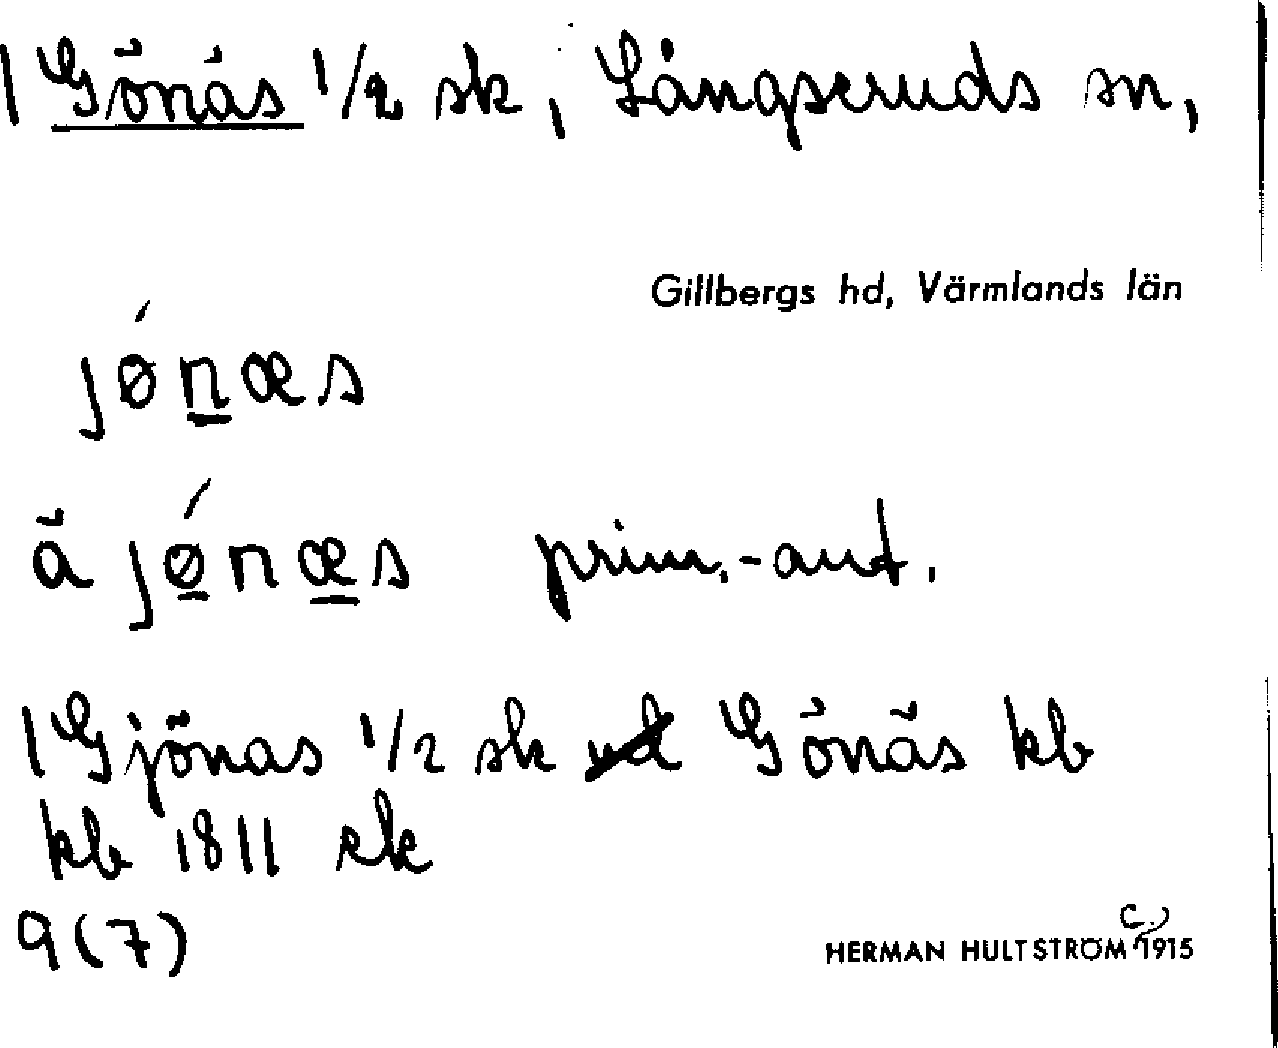 1 Gönäs 1/2 sk, Långseruds sn,
Gillbergs hd, Värmlands län
jǿnæs
å̆ jǿnæs prim.-aut.
1 Gjönas 1/2 sk Gönäs kb
kb 1811 sk
9(7)
HERMAN HULTSTRÖM (c.) 1915